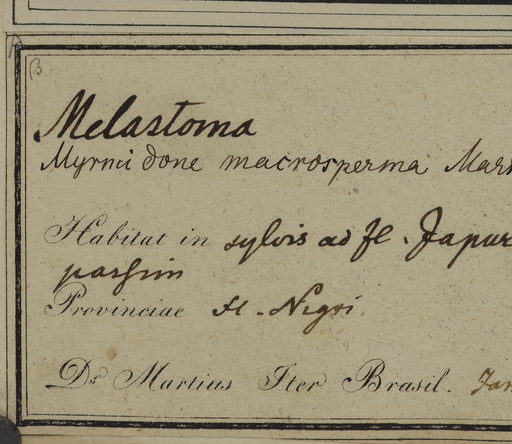 β.
Melastoma
Myrmidone macrosperma Mart
Habitat in sylvis ad fl. Japur
passim
Provinciae fl. Nigri
Dr. Martius Iter Brasil. Jan